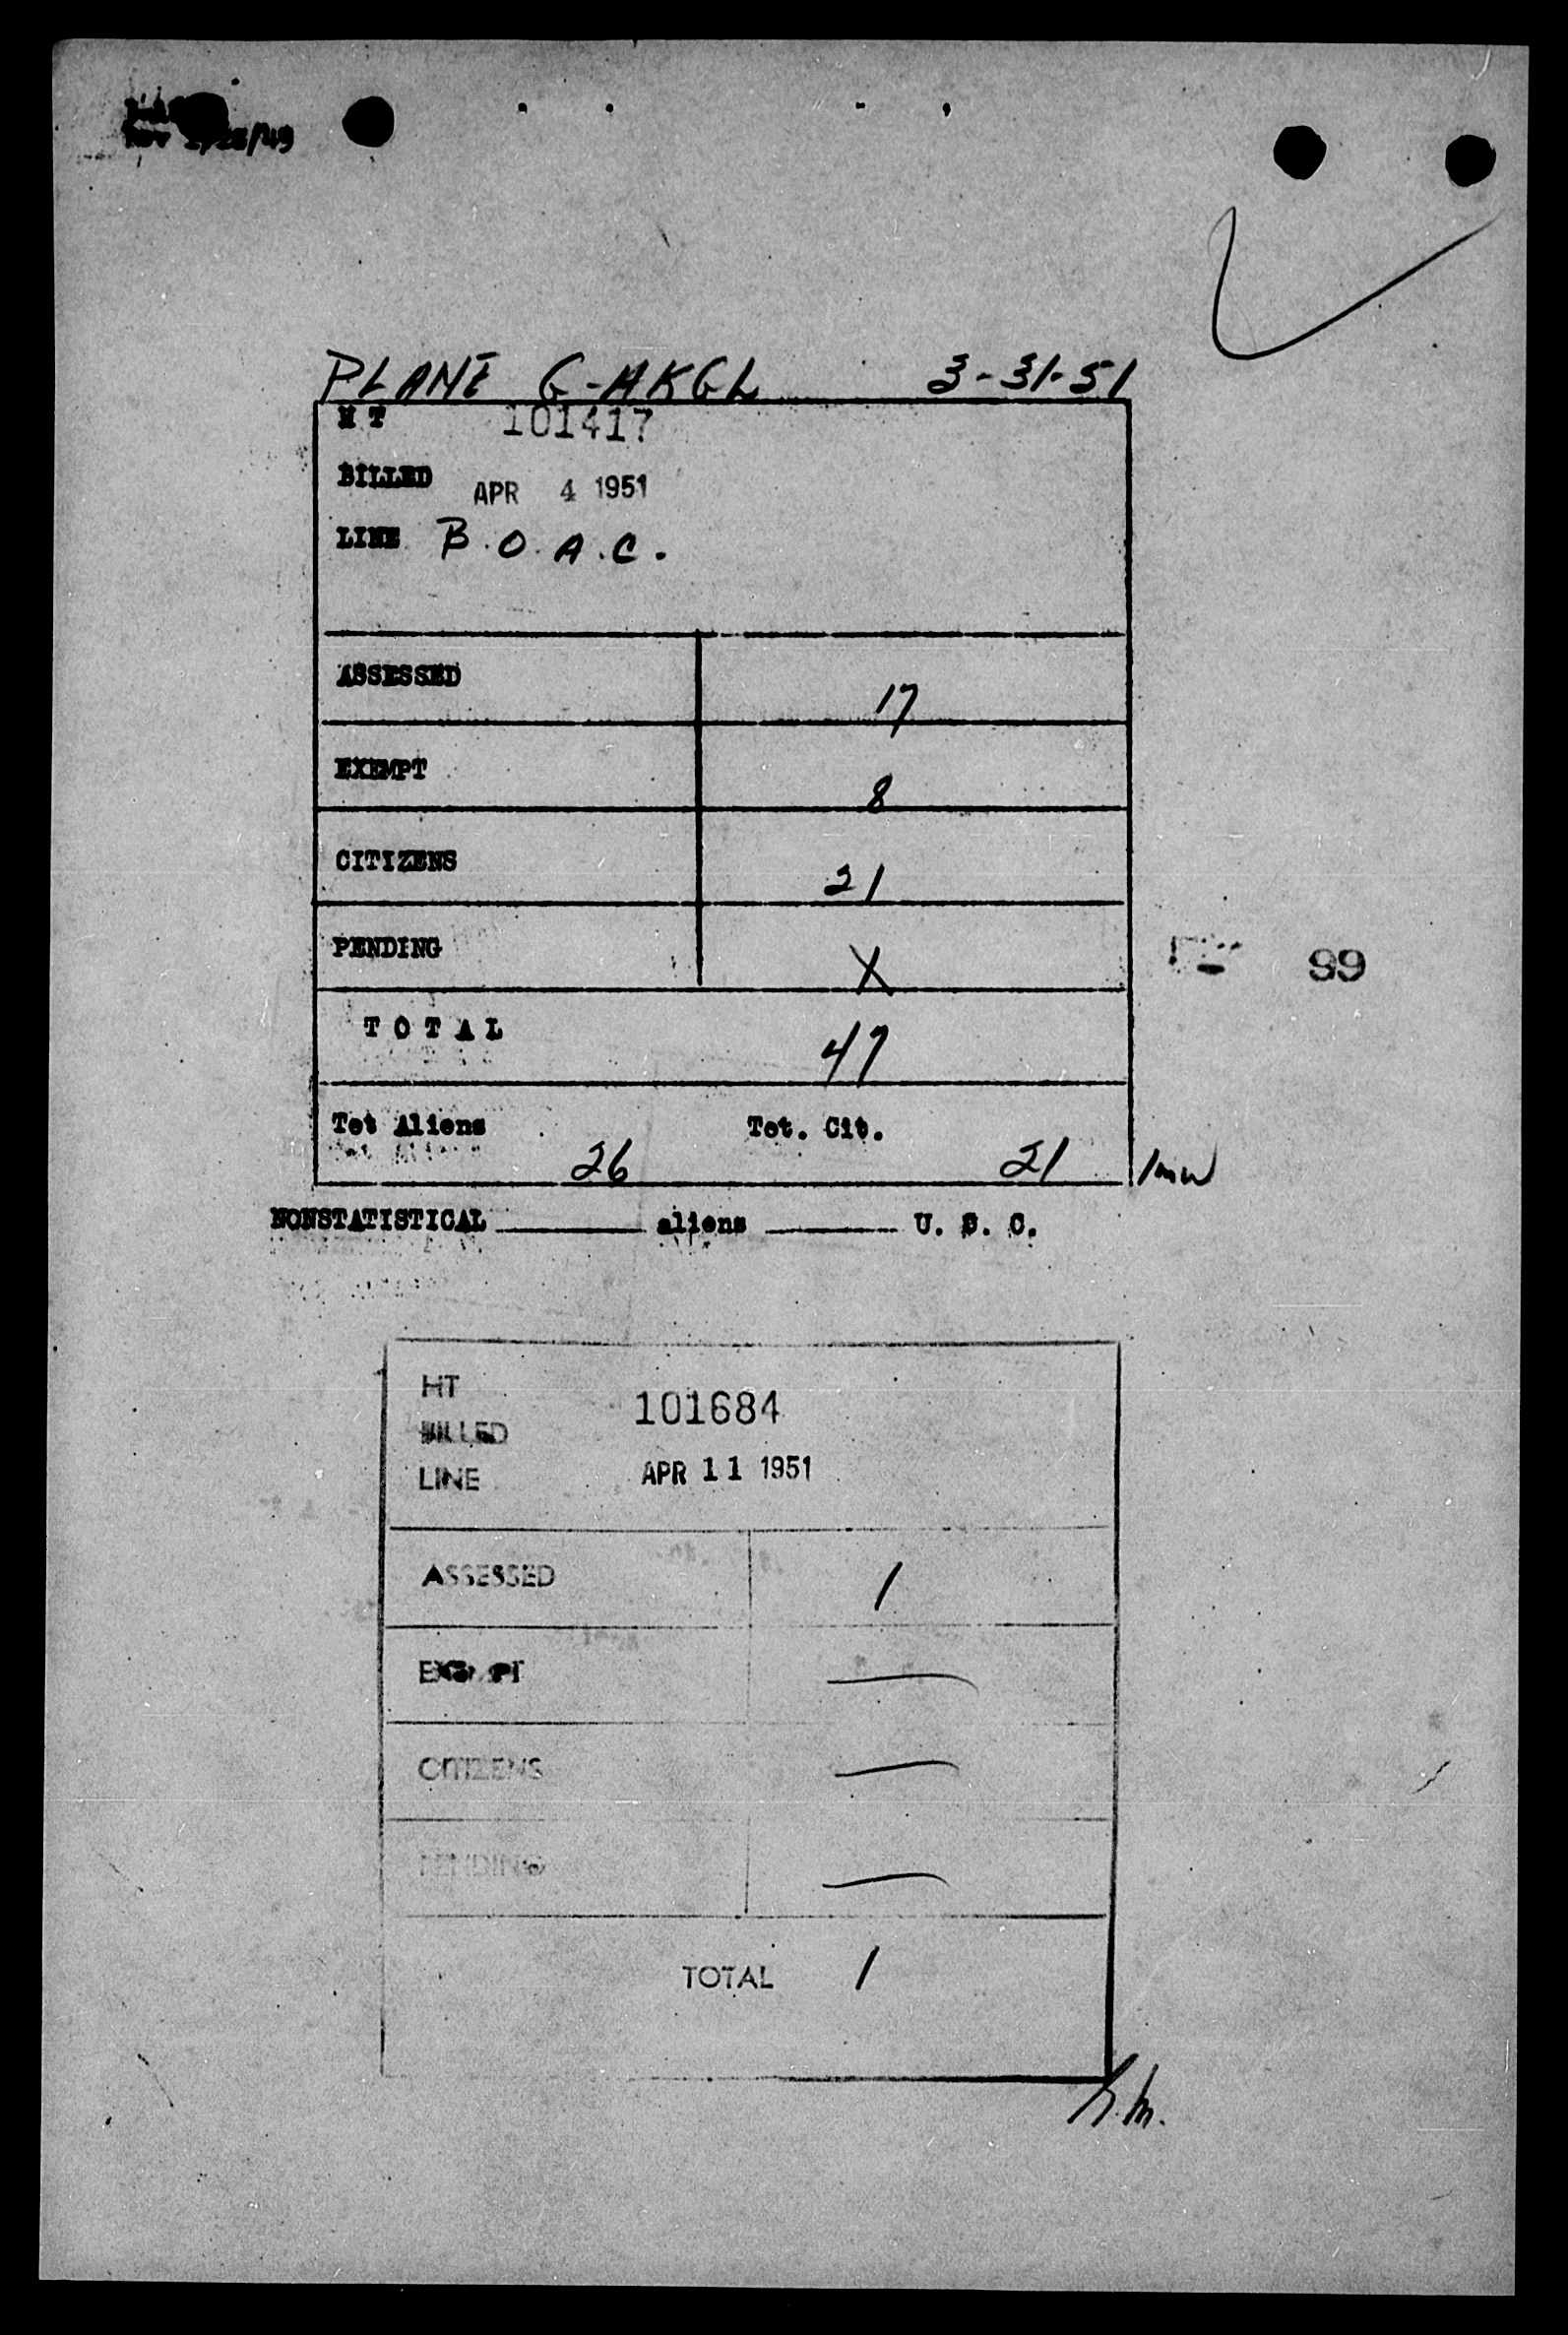 Rev 2/28/49
PLANE G-AKGL 3-31-51
H T 101417
BILLED APR 4 1951
LINE B.O.A.C.
ASSESSED 17
EXEMPT 8
CITIZENS 21
PENDING X
TOTAL 47
Tot Aliens 26 Tot. Cit. 21
NONSTATISTICAL ______ aliens ______ U. S. C.
99
HT 101684
BILLED
LINE APR 11 1951
ASSESSED 1
EXEMPT —
CITIZENS —
PENDING —
TOTAL 1
h.m.